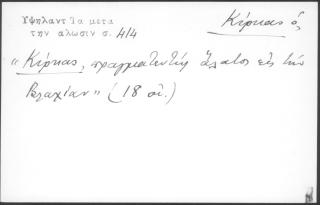 Υψηλαντ Τα μετα
την αλωσιν σ. 414
Κίρκας ὁ,
"Κίρκας, πραγματευτὴς ἅλατος εἰς τὴν
Βλαχίαν" (18 αἰ.)